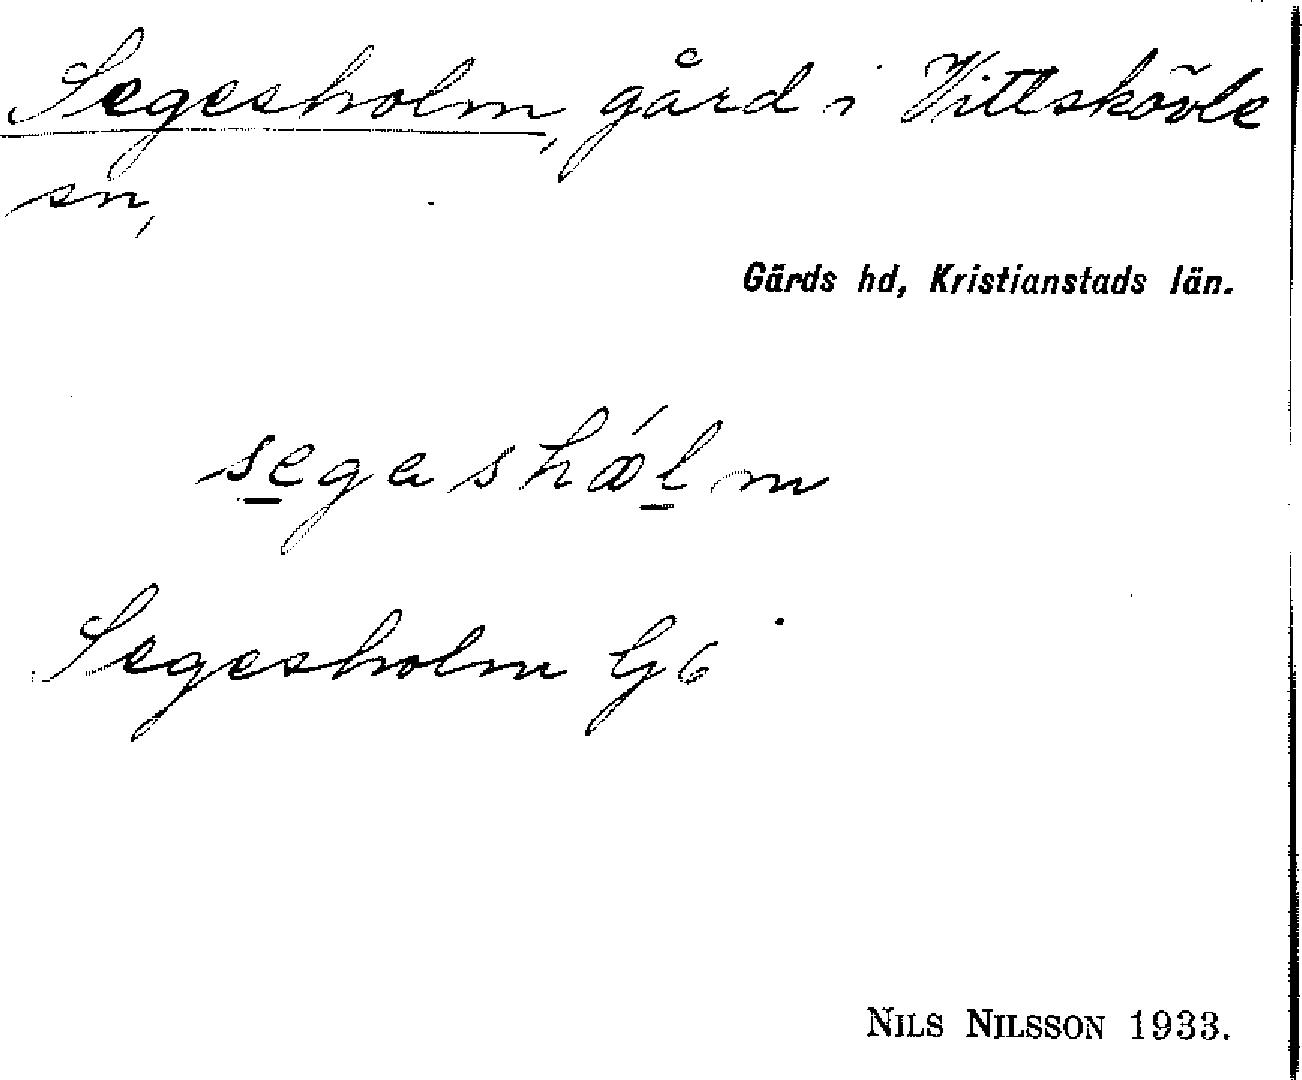 Segesholm, gård i Vittskövle
sn,
Gärds hd, Kristianstads län.
Segesholm Gg
NILS NILSSON 1933.